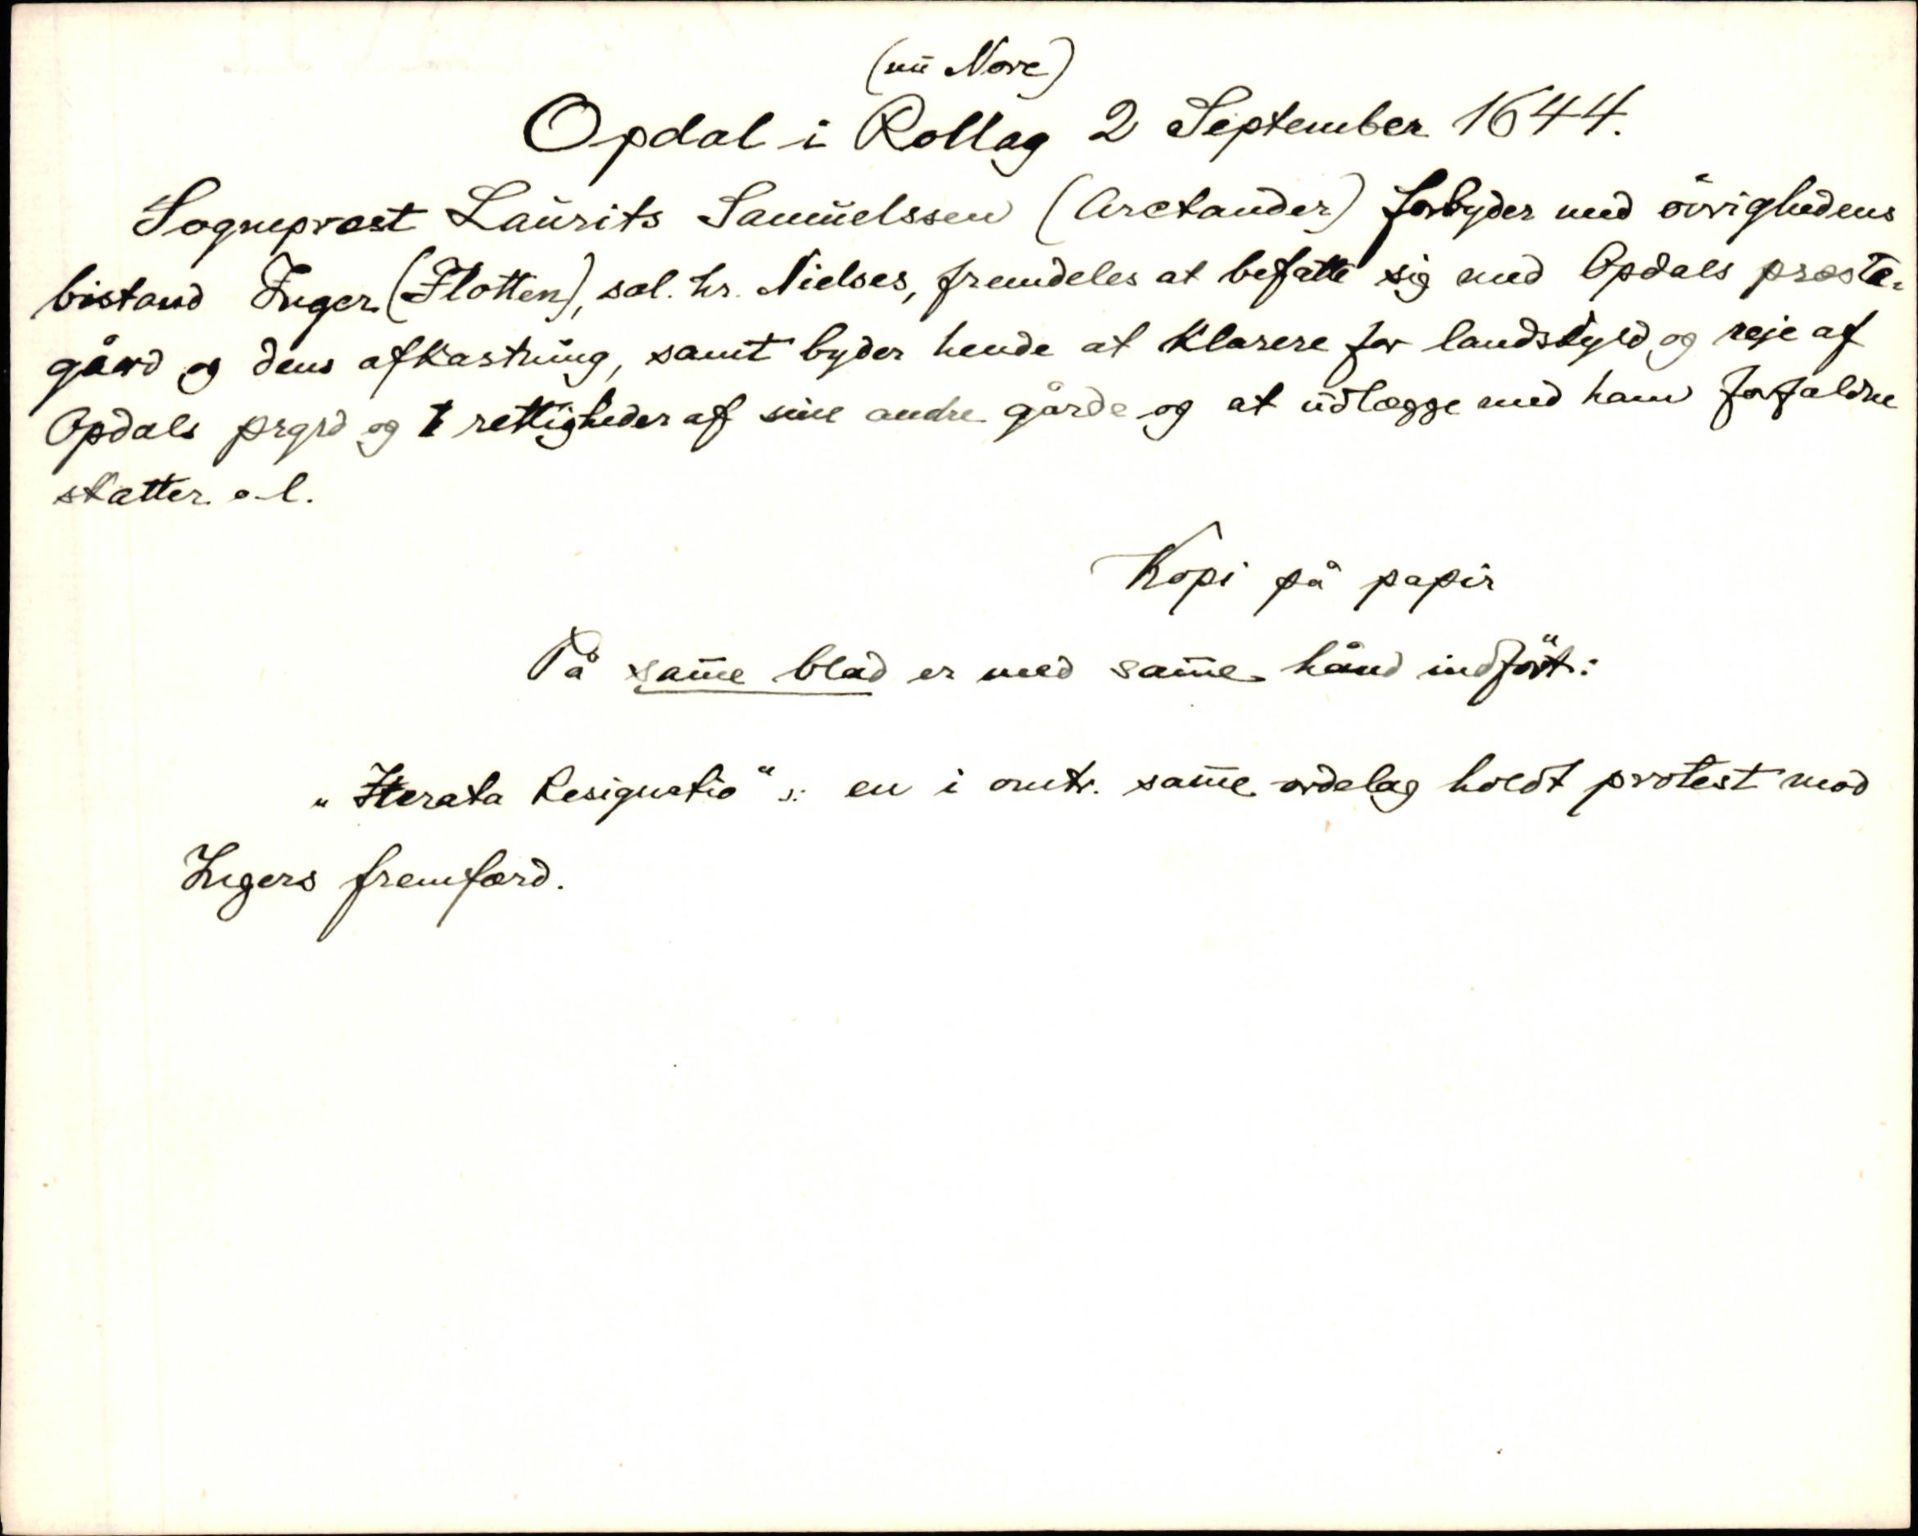 (nu Nore)
Opdal i Rollag 2 September 1644.
Sogneprest Laurits Samuelssen (Arctander) forbyder med övrighedens
bistand Inger (Flotten), sal. hr. Nielses, fremdeles at befatte sig med Opdals præste-
gård og dens afkastning, samt byder hende at klarere for landskyld og leje af
Opdals prgrd og rettigheder af sine andre gårde og at udlægge med ham forfaldne
skatter o. l.
Kopi på papir
På sam̄e blad er med sam̄e hånd indfört:
„Iterata Resignatio“ ɔ: en i omtr. sam̄e ordelag holdt protest mod
Ingers fremfærd.